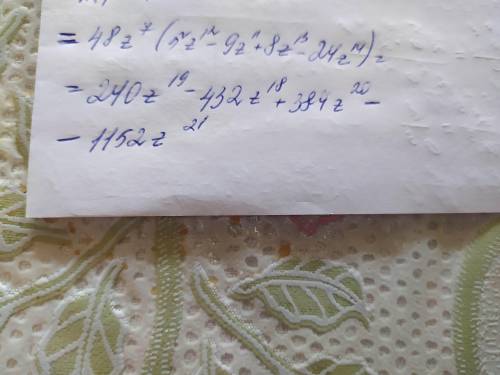 = 48z⁷ (5z¹² - 9z¹¹ + 8z¹³ - 24z¹⁴) =
= 240z¹⁹ - 432z¹⁸ + 384z²⁰ -
- 1152z²¹